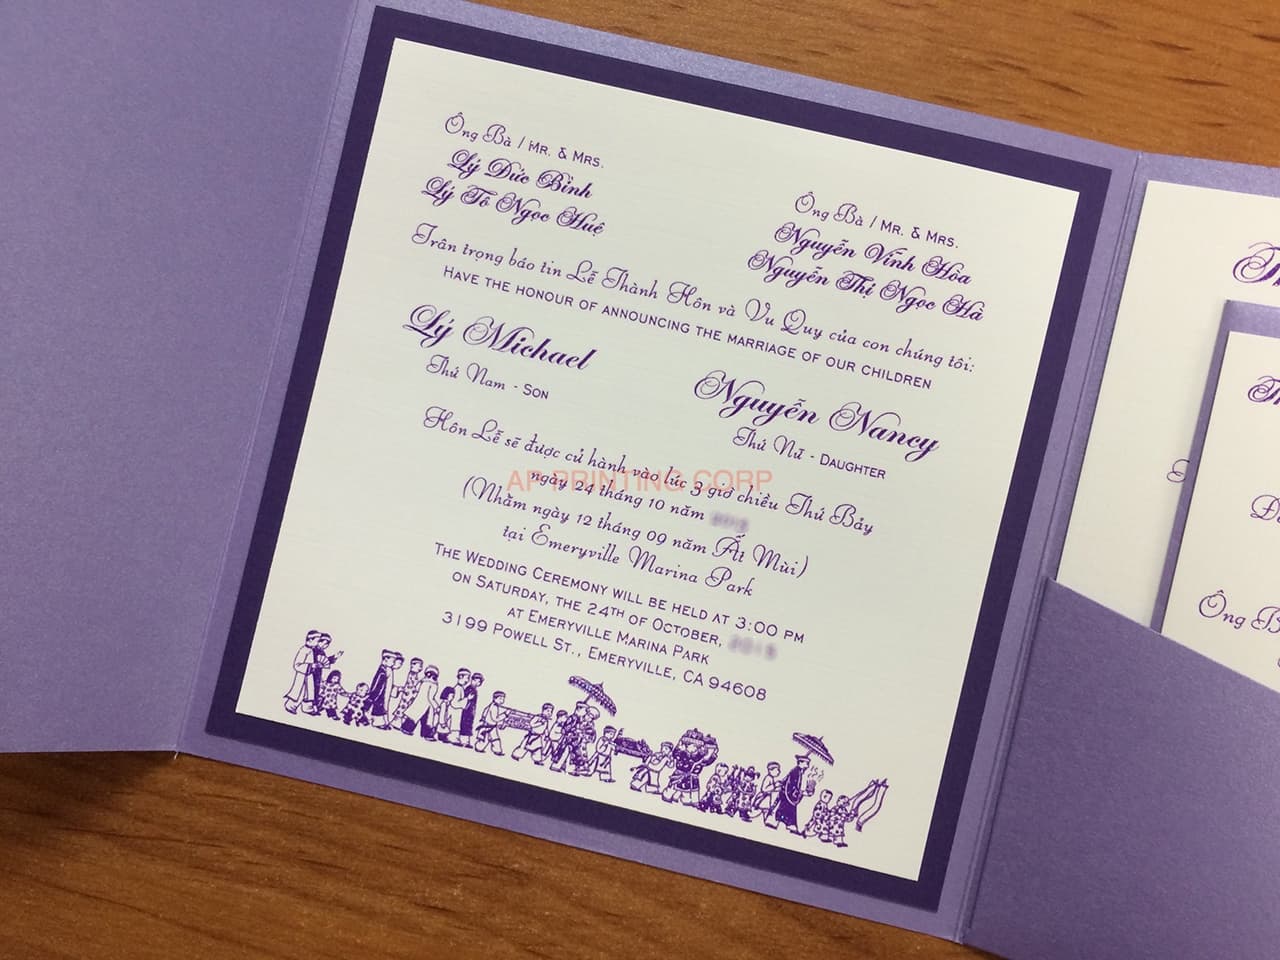 Ông Bà / Mr. & Mrs.
Lý Đức Bình
Lý Tô Ngọc Huệ
Ông Bà / Mr. & Mrs.
Nguyễn Vĩnh Hòa
Nguyễn Thị Ngọc Hà
Trân trọng báo tin Lễ Thành Hôn và Vu Quy của con chúng tôi:
Have the honour of announcing the marriage of our children
Lý Michael
Thứ Nam - Son
Nguyễn Nancy
Thứ Nữ - Daughter
Hôn Lễ sẽ được cử hành vào lúc 3 giờ chiều Thứ Bảy
AP PRINTING CORP
ngày 24 tháng 10 năm
(Nhằm ngày 12 tháng 09 năm Ất Mùi)
tại Emeryville Marina Park
The Wedding Ceremony will be held at 3:00 pm
on Saturday, the 24th of October,
at Emeryville Marina Park
3199 Powell St., Emeryville, CA 94608
Ông